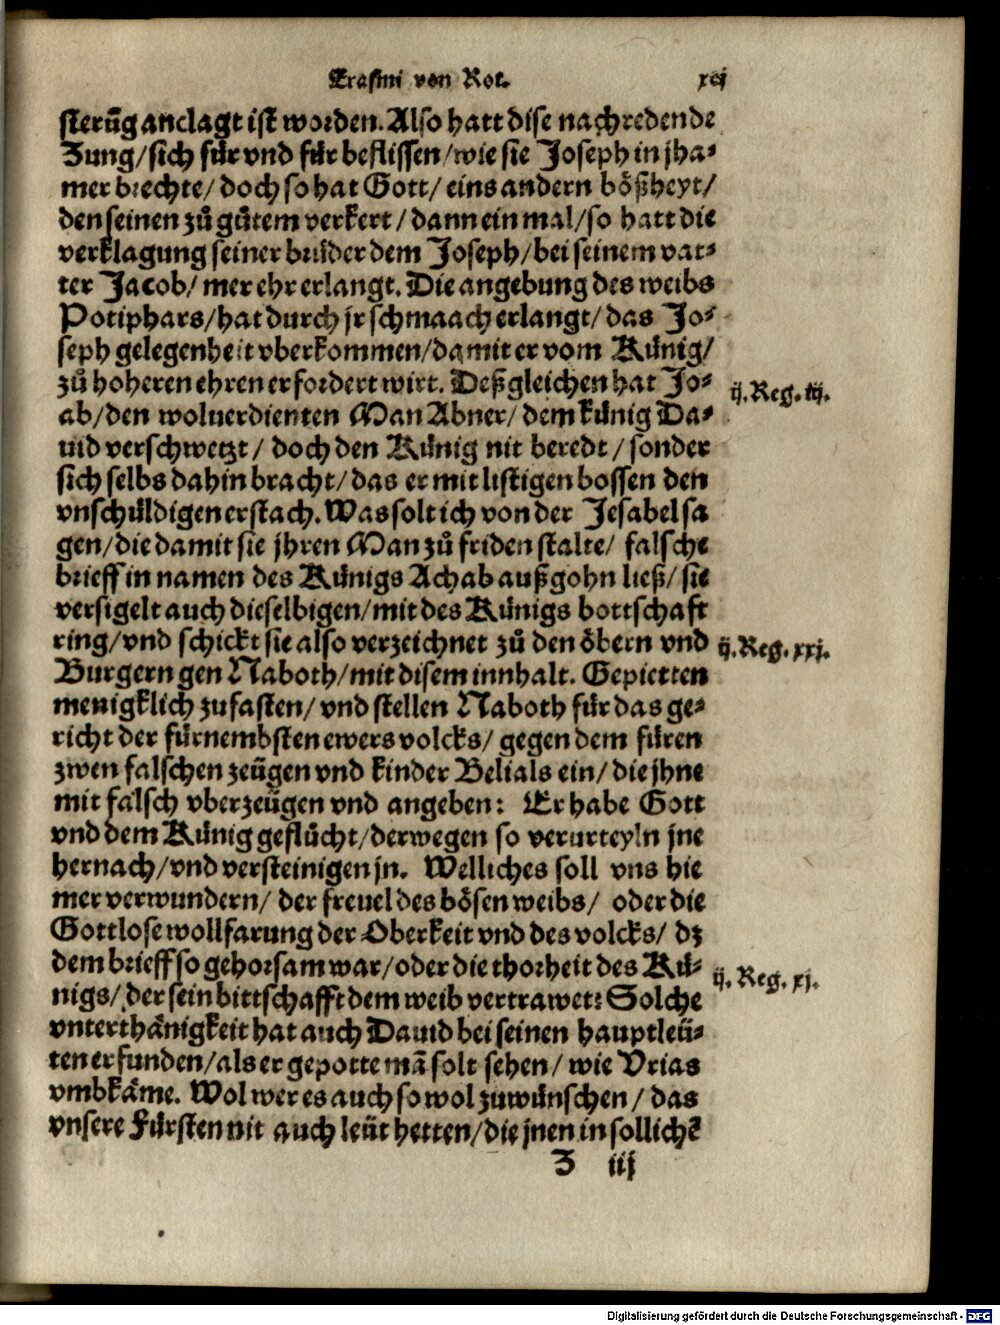 Erasmi von Rot. xcj
sterũg anclagt ist worden. Also hatt dise nachredende
Zung/ sich für vnd für beflissen/ wie sie Joseph in jha⸗
mer brechte/ doch so hat Gott/ eins andern bößheyt/
den seinen zů gůtem verkert/ dann ein mal/ so hatt die
verklagung seiner brüder dem Joseph/ bei seinem vat⸗
ter Jacob/ mer ehr erlangt. Die angebung des weibs
Potiphars/ hat durch jr schmaach erlangt/ das Jo⸗
seph gelegenheit vberkommen/ damit er vom Künig/
zů hoheren ehren erfordert wirt. Deßgleichen hat Jo⸗
ab/ den woluerdienten Man Abner/ dem künig Da⸗
uid verschwetzt/ doch den Künig nit beredt/ sonder
sich selbs dahin bracht/ das er mit listigen bossen den
vnschüldigen erstach. Was solt ich von der Jesabel sa
gen/ die damit sie jhren Man zů friden stalte/ falsche
brieff in namen des Künigs Achab außgohn ließ/ sie
versigelt auch dieselbigen/ mit des Künigs bottschaft
ring/ vnd schickt sie also verzeichnet zů den öbern vnd
Burgern gen Naboth/ mit disem innhalt. Gepietten
menigklich zufasten/ vnd stellen Naboth für das ge⸗
richt der fürnembsten ewers volcks/ gegen dem füren
zwen falschen zeügen vnd kinder Belials ein/ die jhne
mit falsch vberzeügen vnd angeben: Er habe Gott
vnd dem Künig geflůcht/ derwegen so verurteyln jne
hernach/ vnd versteinigen jn. Welliches soll vns hie
mer verwundern/ der freuel des bösen weibs/ oder die
Gottlose wollfarung der Oberkeit vnd des volcks/ dz
dem brieff so gehorsam war/ oder die thorheit des Kü⸗
nigs/ der sein bittschafft dem weib vertrawet: Solche
vnterthänigkeit hat auch Dauid bei seinen hauptleü⸗
ten erfunden/ als er gepotte mã solt sehen/ wie Vrias
vmbkäme. Wol wer es auch so wol zuwünschen/ das
vnsere Fürsten nit auch leüt hetten/ die jnen in sollichẽ
Z iij
ij. Reg. iij.
ij. Reg. xxj.
ij. Reg. xj.
Digitalisierung gefördert durch die Deutsche Forschungsgemeinschaft - DFG